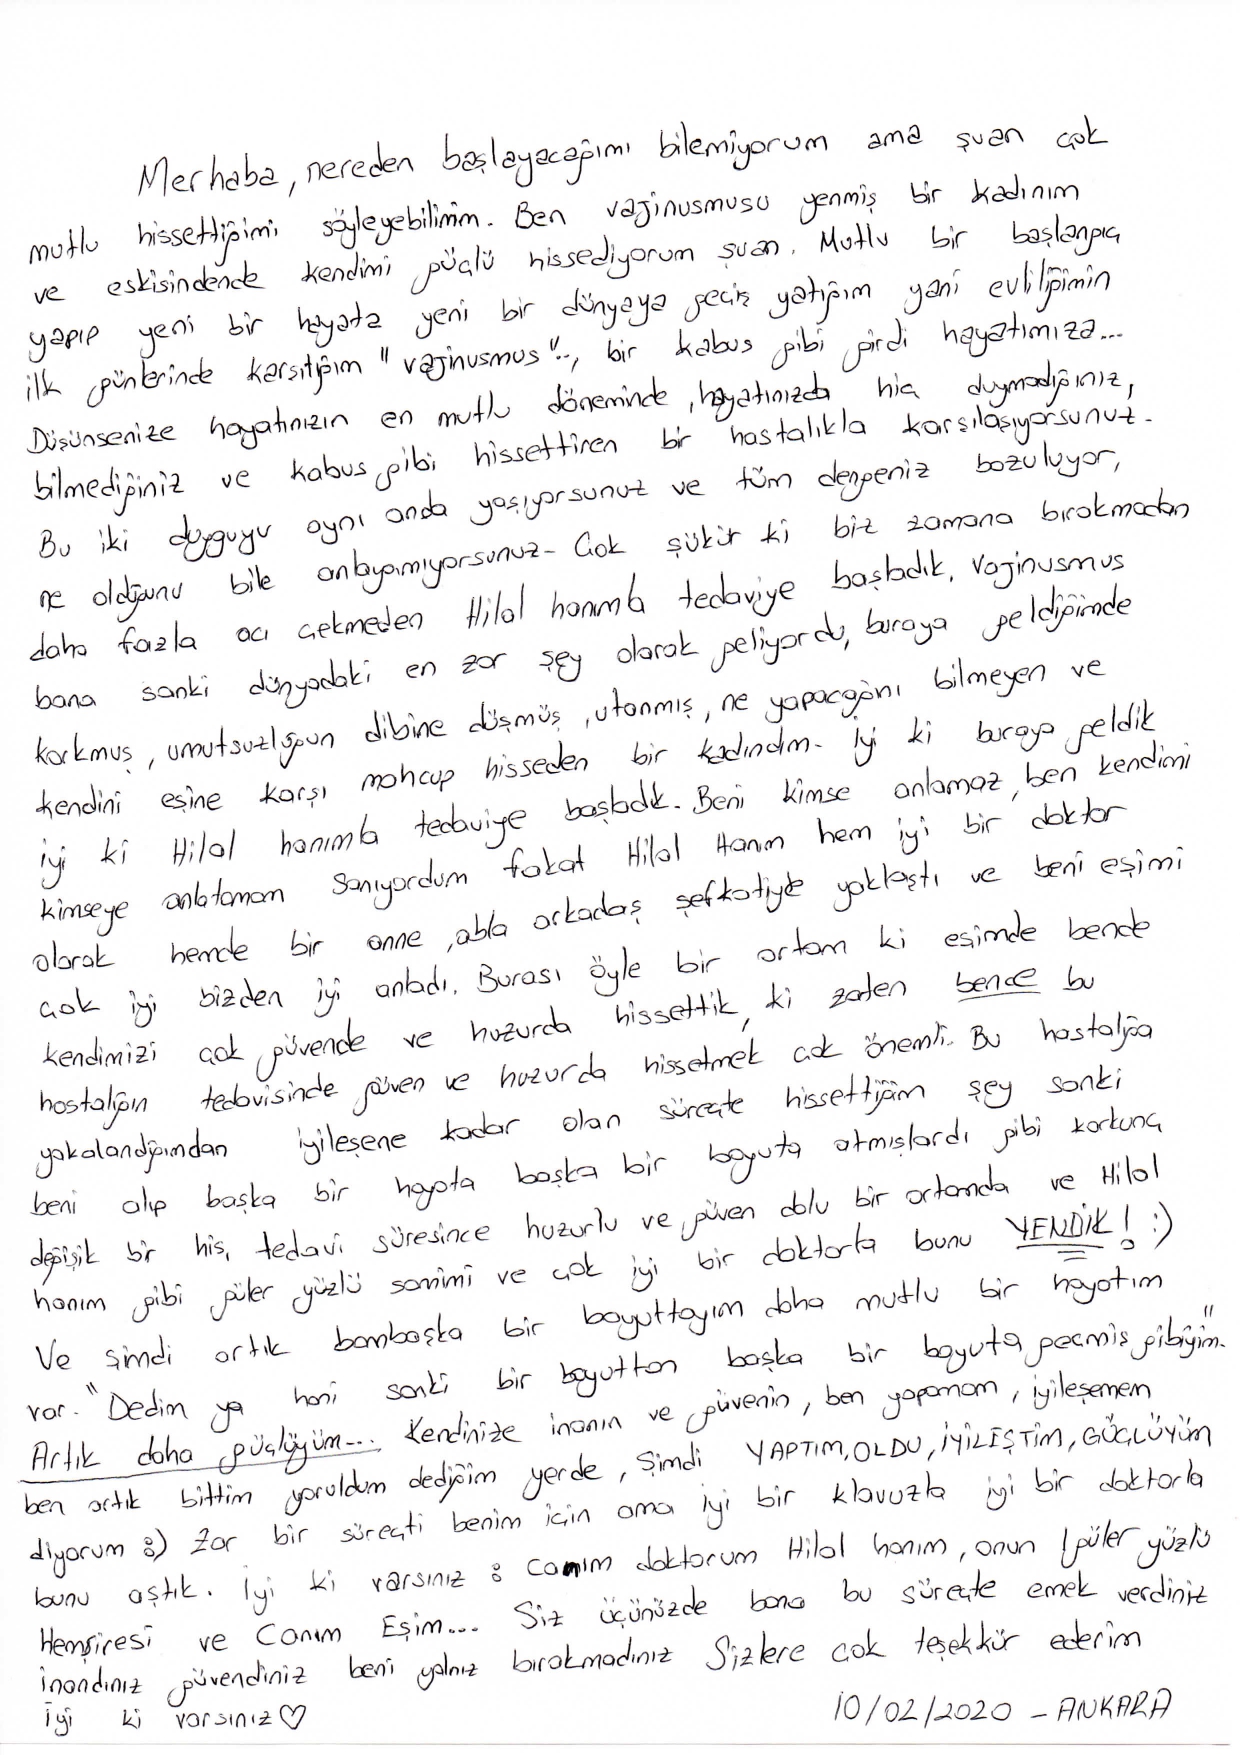 Merhaba, nereden başlayacağımı bilemiyorum ama şuan çok
mutlu hissettiğimi söyleyebilirim. Ben vajinusmusu yenmiş bir kadınım
ve eskisindende kendimi güçlü hissediyorum şuan. Mutlu bir başlangıç
yapıp yeni bir hayata yeni bir dünyaya geçiş yatığım yani evliliğimin
ilk günlerinde karsıtığım "vajinusmus".., bir kabus gibi girdi hayatımıza...
Düşünsenize hayatınızın en mutlu döneminde, hayatınızda hiç duymadığınız,
bilmediğiniz ve kabus gibi hissettiren bir hastalıkla karsılasıyorsunuz.
Bu iki duyguyu aynı anda yaşıyorsunuz ve tüm dengeniz bozuluyor,
ne olduğunu bile anlayamıyorsunuz- Çok şükür ki biz zamana bırakmadan
daha fazla acı çekmeden Hilal hanımla tedaviye başladık. Vajinusmus
bana sanki dünyadaki en zor şey olarak geliyordu, buraya geldiğimde
korkmuş, umutsuzluğun dibine düşmüş, utanmış, ne yapacağını bilmeyen ve
kendini eşine karşı mahcup hisseden bir kadındım. İyi ki buraya geldik
iyi ki Hilal hanımla tedaviye başladık. Beni kimse anlamaz, ben kendimi
kimseye anlatamam sanıyordum fakat Hilal Hanım hem iyi bir doktor
olarak hemde bir anne, abla arkadaş şefkatiyle yaklaştı ve beni eşimi
çok iyi bizden iyi anladı. Burası öyle bir ortam ki eşimde bende
kendimizi çok güvende ve huzurda hissettik, ki zaten bence bu
hastalığın tedavisinde güven ve huzurda hissetmek çok önemli. Bu hastalığa
yakalandığımdan iyileşene kadar olan süreçte hissettiğim şey sanki
beni alıp başka bir hayata başka bir boyuta atmışlardı gibi korkunç
değişik bir his, tedavi süresince huzurlu ve güven dolu bir ortamda ve Hilal
hanım gibi güler yüzlü samimi ve çok iyi bir doktorla bunu YENDİK! :)
Ve şimdi artık bambaşka bir boyuttayım daha mutlu bir hayatım
var. "Dedim ya hani sanki bir boyuttan başka bir boyuta geçmiş gibiyim."
Artık daha güçlüyüm... Kendinize inanın ve güvenin, ben yapamam, iyileşemem
ben artık bittim yoruldum dediğim yerde, şimdi YAPTIM, OLDU, İYİLEŞTİM, GÜÇLÜYÜM
diyorum :) Zor bir süreçti benim için ama iyi bir klavuzla iyi bir doktorla
bunu aştık. İyi ki varsınız : Canım doktorum Hilal hanım, onun güler yüzlü
Hemşiresi ve Canım Eşim... Siz üçünüzde bana bu süreçte emek verdiniz
inandınız güvendiniz beni yalnız bırakmadınız Sizlere çok teşekkür ederim
İyi ki varsınız ♡ 10/02/2020 - ANKARA